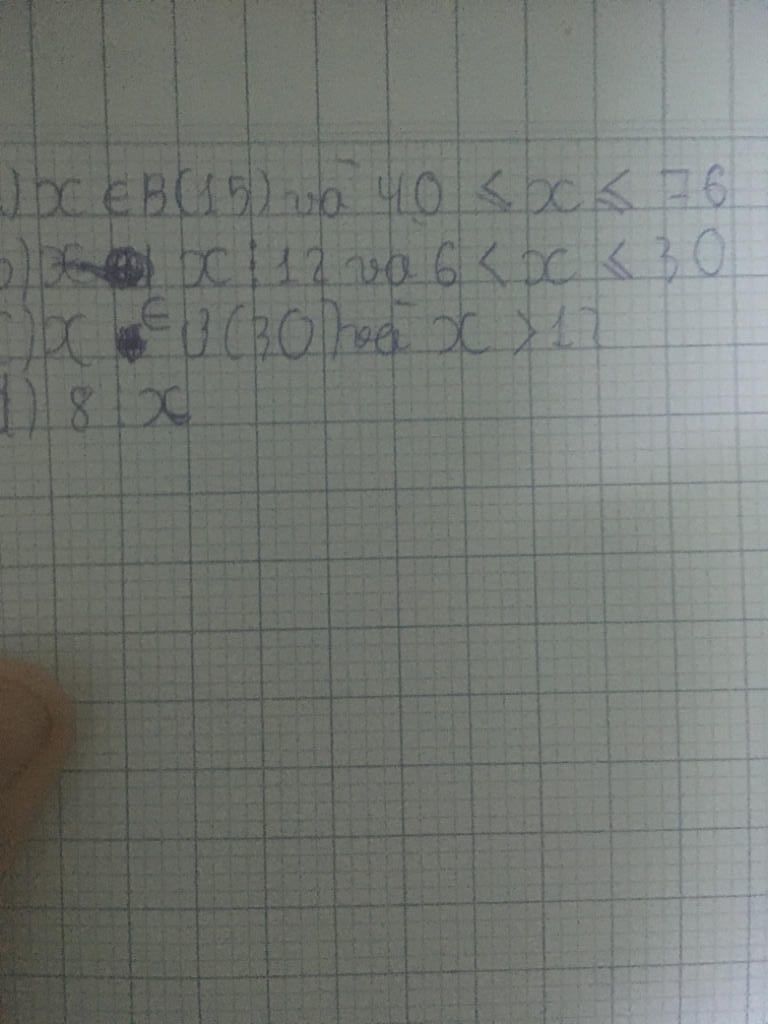 a) x ∈ B(15) và 40 ≤ x ≤ 76
b) x ⋮ 12 và 6 < x ≤ 30
c) x ∈ Ư(30) và x > 12
d) 8 ⋮ x